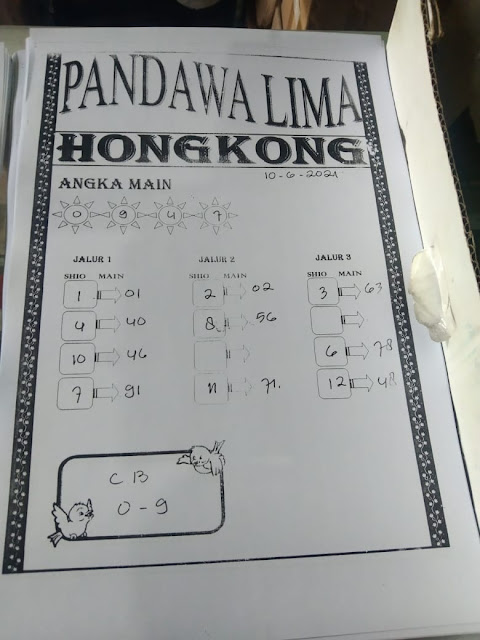 PANDAWA LIMA
HONGKONG
10-6-2021
ANGKA MAIN
0 9 4 7
JALUR 1
SHIO MAIN
1 01
4 40
10 46
7 91
JALUR 2
SHIO MAIN
2 02
8 56
11 71.
JALUR 3
SHIO MAIN
3 63
6 78
12 48
CB
0-9